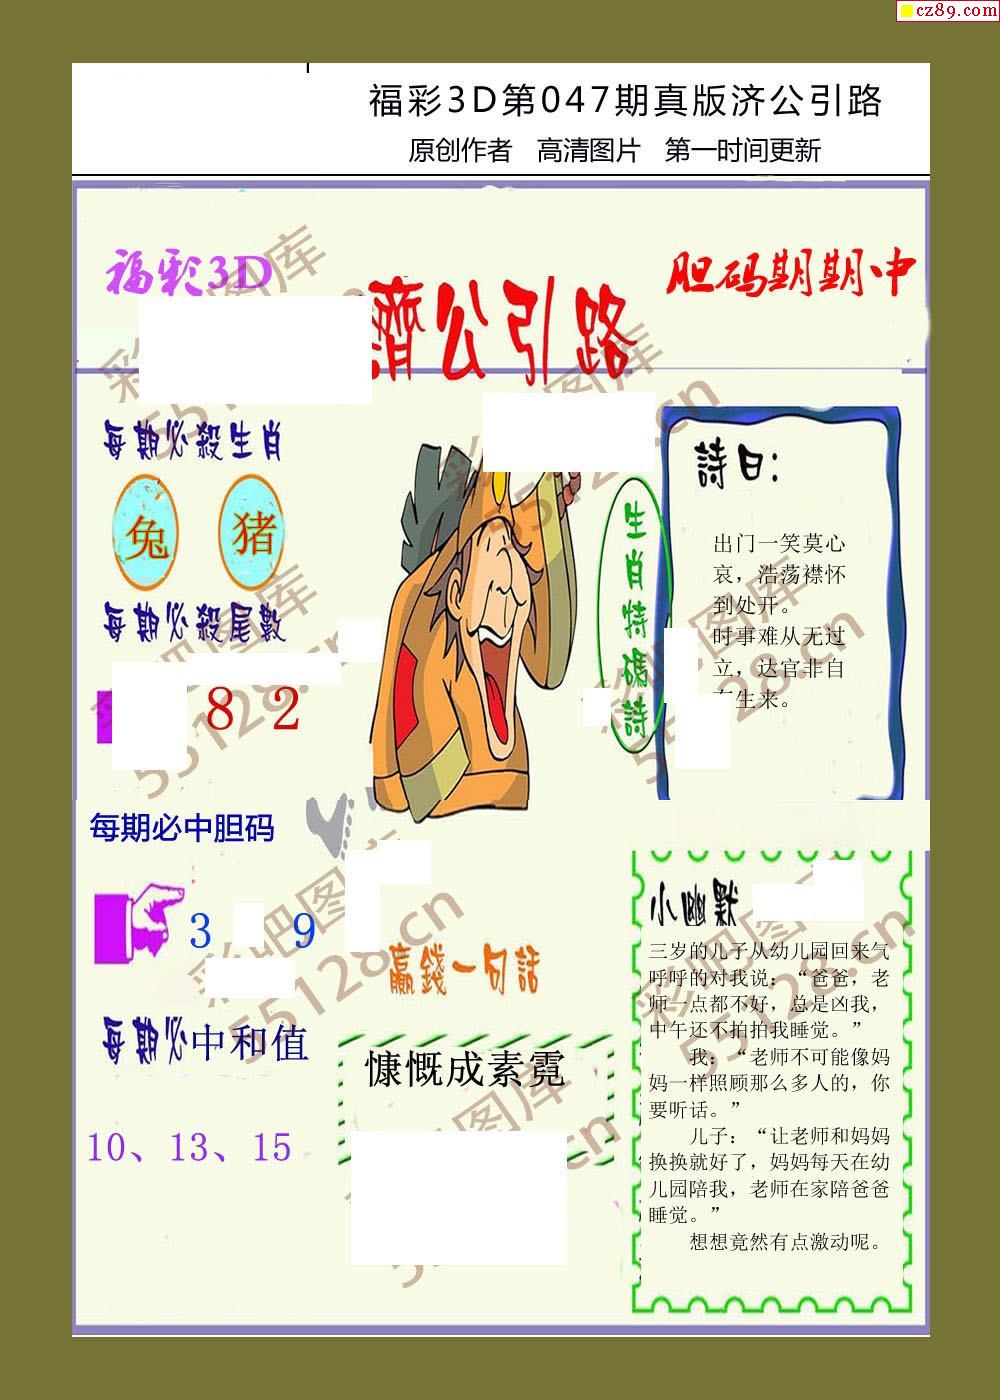 cz89.com
福彩3D第047期真版济公引路
原创作者 高清图片 第一时间更新
福彩3D
濟公引路
胆码期期中
每期必殺生肖
兔 猪
每期必殺尾數
8 2
每期必中胆码
3 9
每期必中和值
10、13、15
生肖特碼詩
詩曰：
出门一笑莫心
哀，浩荡襟怀
到处开。
时事难从无过
立，达官非自
生来。
贏錢一句話
慷慨成素霓
小幽默
三岁的儿子从幼儿园回来气
呼呼的对我说：“爸爸，老
师一点都不好，总是凶我，
中午还不拍拍我睡觉。”
我：“老师不可能像妈
妈一样照顾那么多人的，你
要听话。”
儿子：“让老师和妈妈
换换就好了，妈妈每天在幼
儿园陪我，老师在家陪爸爸
睡觉。”
想想竟然有点激动呢。
彩吧图库
55128.cn